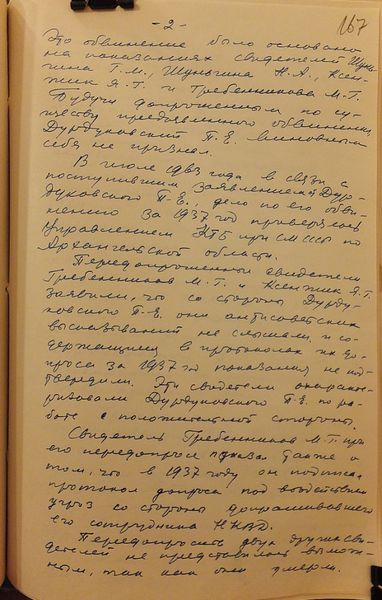 -2-
167
Это обвинение было основано
на показаниях свидетелей Шуньгина Т.М., Шуньгина Н.А., Ксенжик Я.Т. и Гребенникова М.Т.
Будучи допрошенным по существу предъявленного обвинения,
Дурдуковский П.Е. виновным
себя не признал.
В июле 1963 года в связи с
поступившим заявлением Дурдуковского П.Е., дело по его обвинению за 1937 год проверялось
Управлением КГБ при СМ СССР по
Архангельской области.
Передопрошенные свидетели
Гребенников М.Т. и Ксенжик Я.Т.
заявили, что со стороны Дурдуковского П.Е. они антисоветских
высказываний не слышали и содержащиеся в протоколах их допроса за 1937 год показания не подтвердили. Эти свидетели охарактеризовали Дурдуковского П.Е. по работе с положительной стороны.
Свидетель Гребенников М.Т. при
его передопросе показал также о
том, что в 1937 году он подписал
протокол допроса под воздействием
угроз со стороны допрашивавшего
его сотрудника НКВД.
Передопросить двух других свидетелей не представилось возможным, так как они умерли.